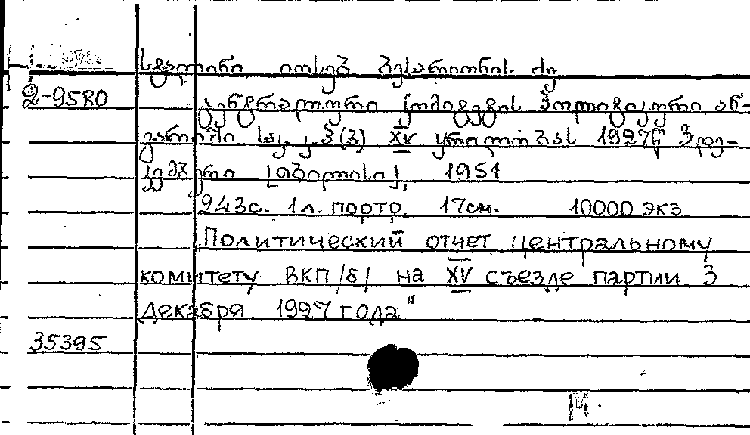 სტალინი იოსებ ბესარიონის ძე
2-9580
ცენტრალური კომიტეტის პოლიტიკური ან-
გარიში საკ. კ. პ(ბ) XV ყრილობას 1927წ 3 დე-
კემბერი [თბილისი], 1951
243с. 1л. портр. 17см. 10000 экз.
Политический отчет центральному
комитету ВКП/б/ на XV съезде партии 3
декабря 1927 года"
35395